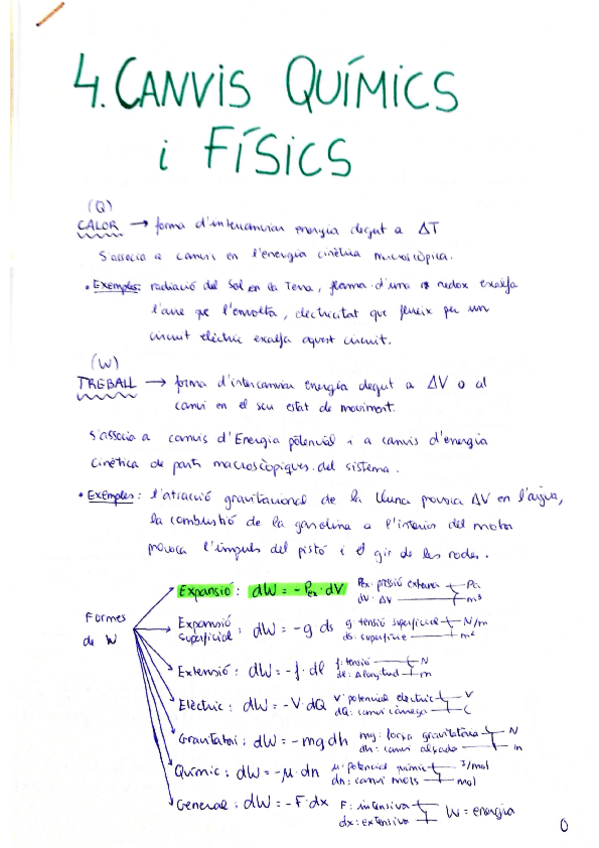 4. CANVIS QUÍMICS
i FÍSICS
(Q)
CALOR → forma d'intercanviar energia degut a ΔT
S'associa a canvis en l'energia cinètica microscòpica.
• Exemples: radiació del Sol en la Terra, flama d'una redox escalfa
l'aire que l'envolta, electricitat que flueix per un
circuit elèctric escalfa aquest circuit.
(W)
TREBALL → forma d'intercanviar energia degut a ΔV o al
canvi en el seu estat de moviment.
S'associa a canvis d'Energia potencial i a canvis d'energia
cinètica de parts macroscòpiques del sistema.
• Exemples: l'atracció gravitacional de la lluna provoca ΔV en l'aigua,
la combustió de la gasolina a l'interior del motor
provoca l'impuls del pistó i el gir de les rodes.
Formes
de W
Expansió: dW = -Pex·dV Pex: pressió externa Pa
dV: ΔV m³
Expansió
Superficial: dW = -g ds g tensió superficial N/m
ds: superfície m²
Extensió: dW = -f·dl f: tensió N
dl: Δlongitud m
Elèctric: dW = -V·dQ V: potencial elèctric V
dQ: canvi càrrega C
Gravitatori: dW = -mgdh mg: força gravitatòria N
dh: canvi alçada m
Químic: dW = -μ·dn μ: potencial químic J/mol
dn: canvi mols mol
General: dW = -F·dx F: intensiva
dx: extensiva W = energia
0